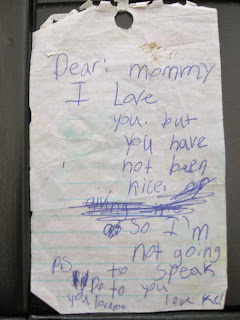 Dear: mommy
I Love
you. but
you have
not been
nice.
So I'm
not going
to speak
to you
PS
Do
you love me
love